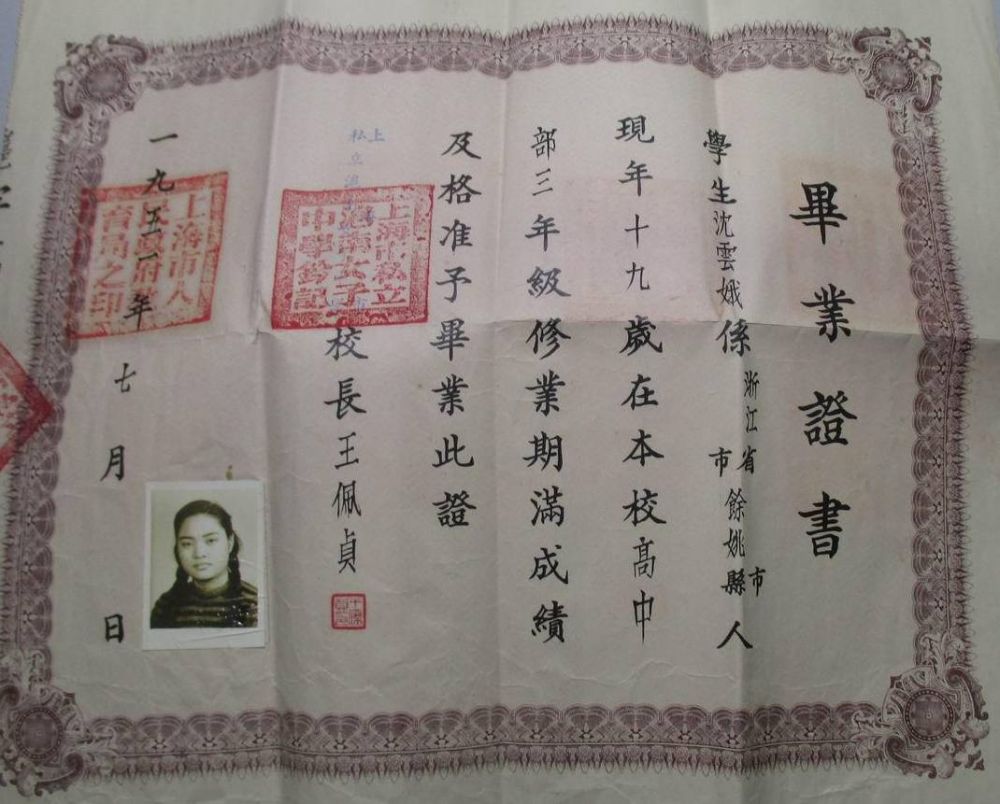 畢業證書
學生沈雲娥係浙江省市餘姚縣市人
現年十九歲在本校高中
部三年級修業期滿成績
及格准予畢業此證
上
私立滬
校長王佩貞
上海市私立
女子
中學鈐記
一九五一年七月日
上海市人
民政府教
育局之印